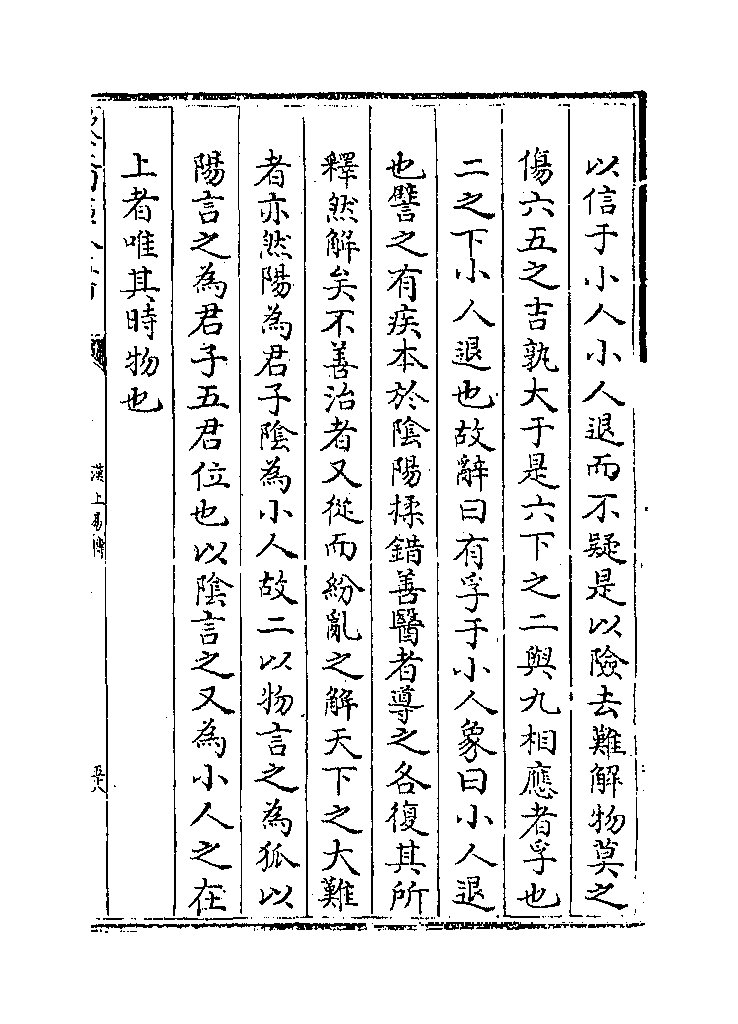 以信于小人小人退而不疑是以險去難解物莫之
傷六五之吉孰大于是六下之二與九相應者孚也
二之下小人退也故辭曰有孚于小人象曰小人退
也譬之有疾本於陰陽揉錯善醫者導之各復其所
釋然解矣不善治者又從而紛亂之解天下之大難
者亦然陽為君子陰為小人故二以物言之為狐以
陽言之為君子五君位也以陰言之又為小人之在
上者唯其時物也
漢上易傳